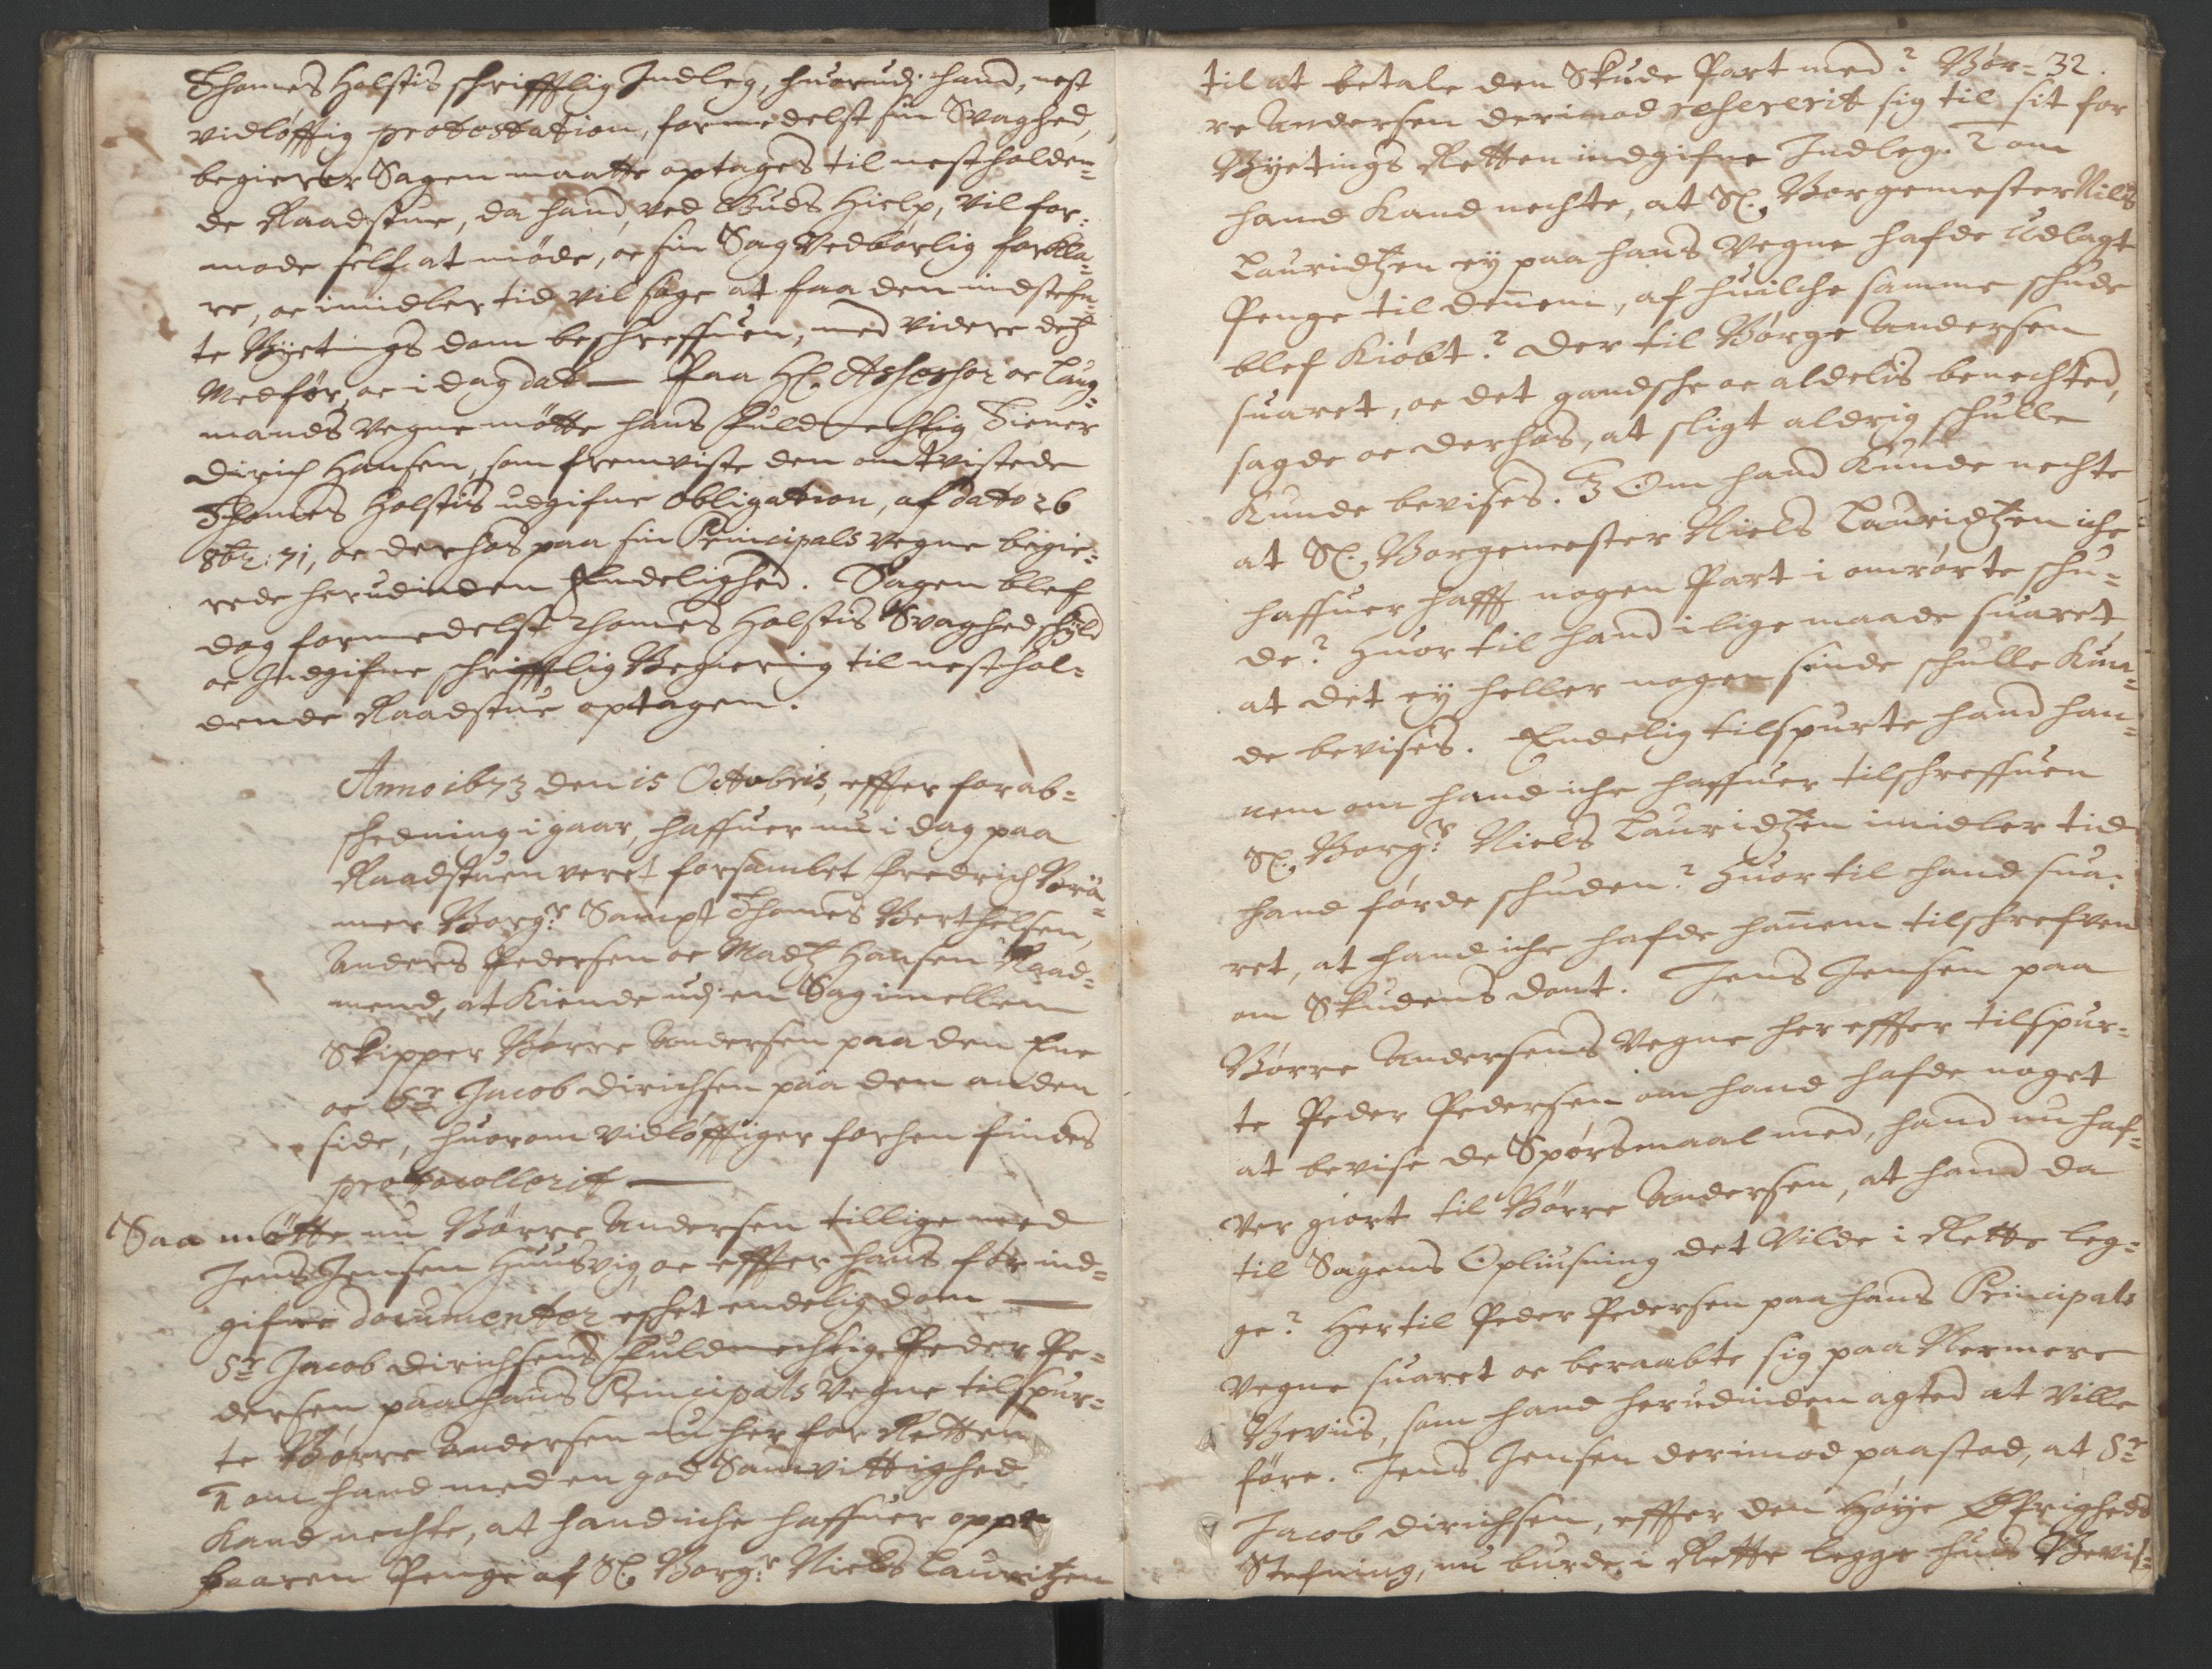 Thomes Holstis schrifftlig Indleg, huorudj hand, nest
vidløfftig protestation, formedelst sin Svaghed,
begierer Sagen maatte optages til nestholden=
de Raadstue, da hand, ved Guds Hielp, vil for=
mode self at møde, oc sin Sag Vedbørlig forkla=
re, oc imidler tid vil søge at faa den indstefn=
te Byetings dom beschreffuen, med videre detz
Medfør, oc i dag dat — Paa Hr. Assessor oc Laug=
mands Vegne møtte hans Fuldmechtig Tiener
Dirich Hansen, som fremviste den omtvistede
Thomes Holstis udgifne obligation, af dato 26
8br: 71, oc derhos paa sin Principals vegne begie=
rede herudinden Endelighed. Sagen blef
dog formedelst Thomes Holstis Svaghed schyld
oc Indgifne schrifftlig Begiering til nesthol=
dende Raadstue optagen.
Anno 1673 den 15 Octobris, effter forab=
schedning i gaar, haffuer nu i dag paa
Raadstuen veret forsamblet Fredrich Brö=
mer Borgr. Sampt Thomes Berthelsen,
Anders Pedersen oc Madtz Hansen Raad=
mend, at Kiende udj en Sag imellem
Skipper Børre Andersen paa den Ene
oc Sr. Jacob Dirichsen paa den anden
side, huorom vidløfftiger forhen findes
protocollerit —
Saa mötte nu Børre Andersen tillige med
Jens Jensen Huusvig, oc effter hans før ind=
gifne documenter eschet endelig dom —
Sr. Jacob Dirichsens Fuldmechtig Peder Pe=
dersen paa hans Principals Vegne tilspur=
te Børre Andersen nu her for Retten
1 om hand med en god Samvittighed
Kand nechte, at hand iche haffuer oppe
baaren Penge af Sl. Borgr. Niels Lauritzen
til at betale den Skude Part med? Bör= 32.
re Andersen derimod refererit sig til sit for
Byetings Retten indgifne Indleg. 2 om
hand Kand nechte, at Sl. Borgemester Nils
Lauridtzen ey paa hans Vegne hafde Udlagt
Penge til dennem, af huilche samme schude
blef Kiøbt? Der til Børge Andersen
suaret, oc det gandsche oc aldelis benechted,
sagde oc derhos, at sligt aldrig schulle
Kunde bevises. 3 Om hand Kunde nechte
at Sl. Borgemester Niels Lauridtzen iche
haffuer hafft nogen Part i omrørte schu=
de? Huor til hand i lige maade suaret
at det ey heller nogen sinde schulle Kun=
de bevises. Endelig tilspurte hand han=
nem om hand iche haffuer tilschreffuen
Sl. Borgr. Niels Lauridtzen imidler tid
hand førde schuden? Huor til hand sua=
ret, at hand iche hafde hannem tilschrefven
om Skudens dont. Jens Jensen paa
Børre Andersens Vegne her effter tilspur=
te Peder Pedersen om hand hafde noget
at bevise de Spørsmaal med, hand nu haf=
ver giort til Børre Andersen, at hand da
til Sagens Opliusning det Vilde i Rette leg=
ge? Her til Peder Pedersen paa hans Principals
Vegne suaret oc beraabte sig paa Nermere
Beviis, som hand herudinden agted at Ville
føre. Jens Jensen derimod paastod, at Sr.
Jacob Dirichsen, effter den Høye Øfrigheds
Stefning, nu burde i Rette legge hues Bevis=